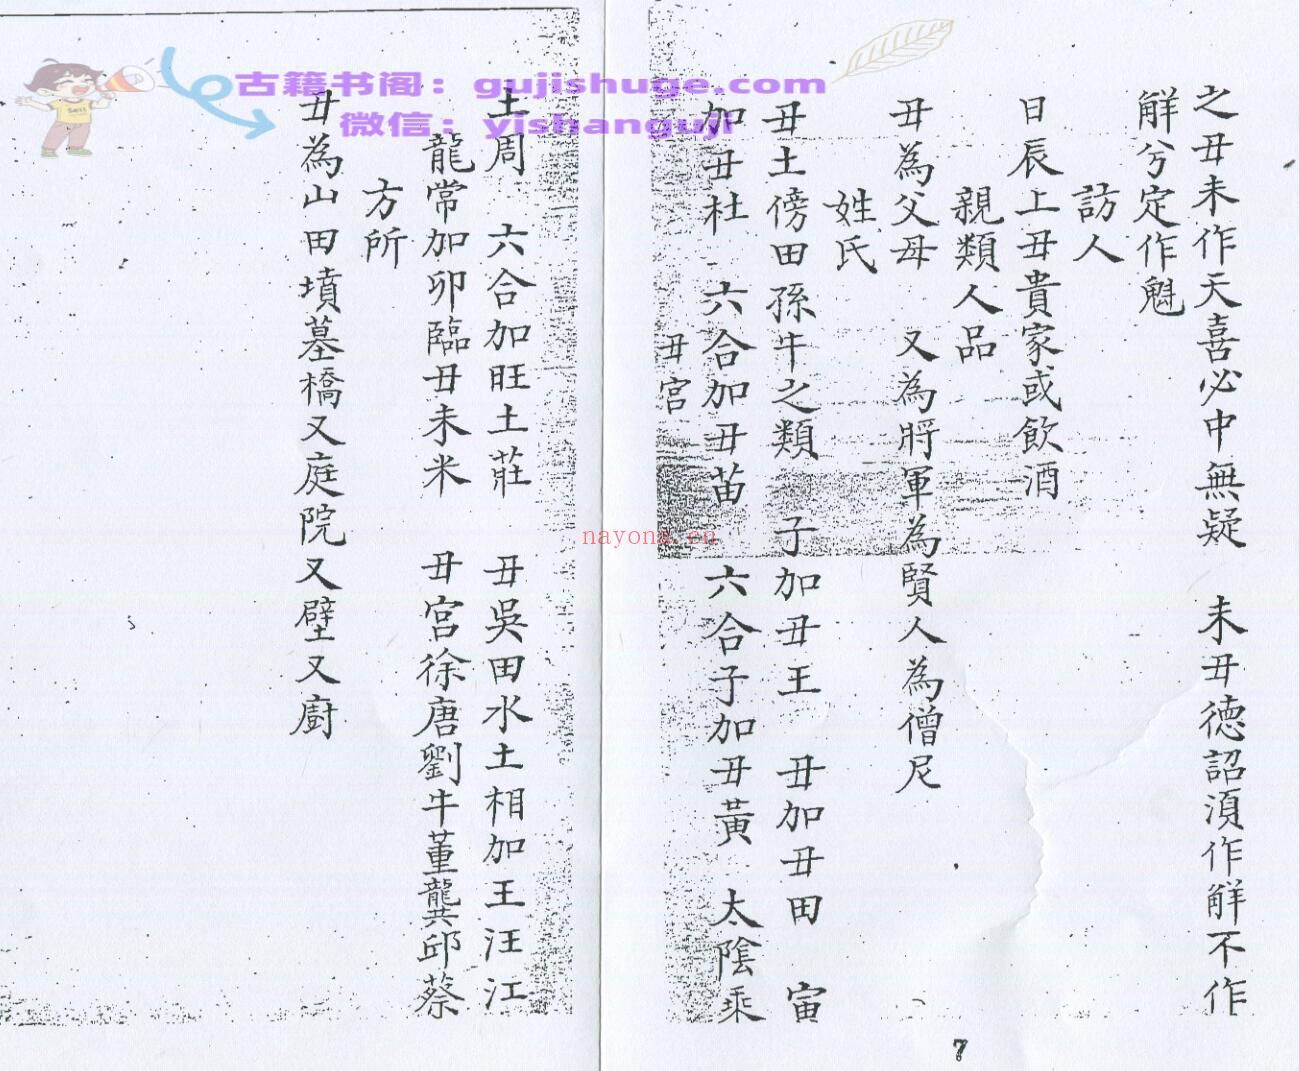 之丑未作天喜必中無疑　未丑德詔湏作觧不作
觧兮定作魁
訪人
日辰上丑貴家或飲酒
親類人品
丑為父母　又為將軍為賢人為僧尼
姓氏
丑土傍田孫牛之類　子加丑王　丑加丑田　寅
加丑杜　六合加丑苗　六合子加丑黃　太陰乘
丑宮
土周　六合加旺土莊　丑吳田水土相加王汪江
龍常加卯臨丑未米　丑宮徐唐劉牛董龔邱蔡
方所
丑為山田墳墓橋又庭院又壁又廚
7
古籍书阁：gujishuge.com
微信：yishanguji
nayona.cn